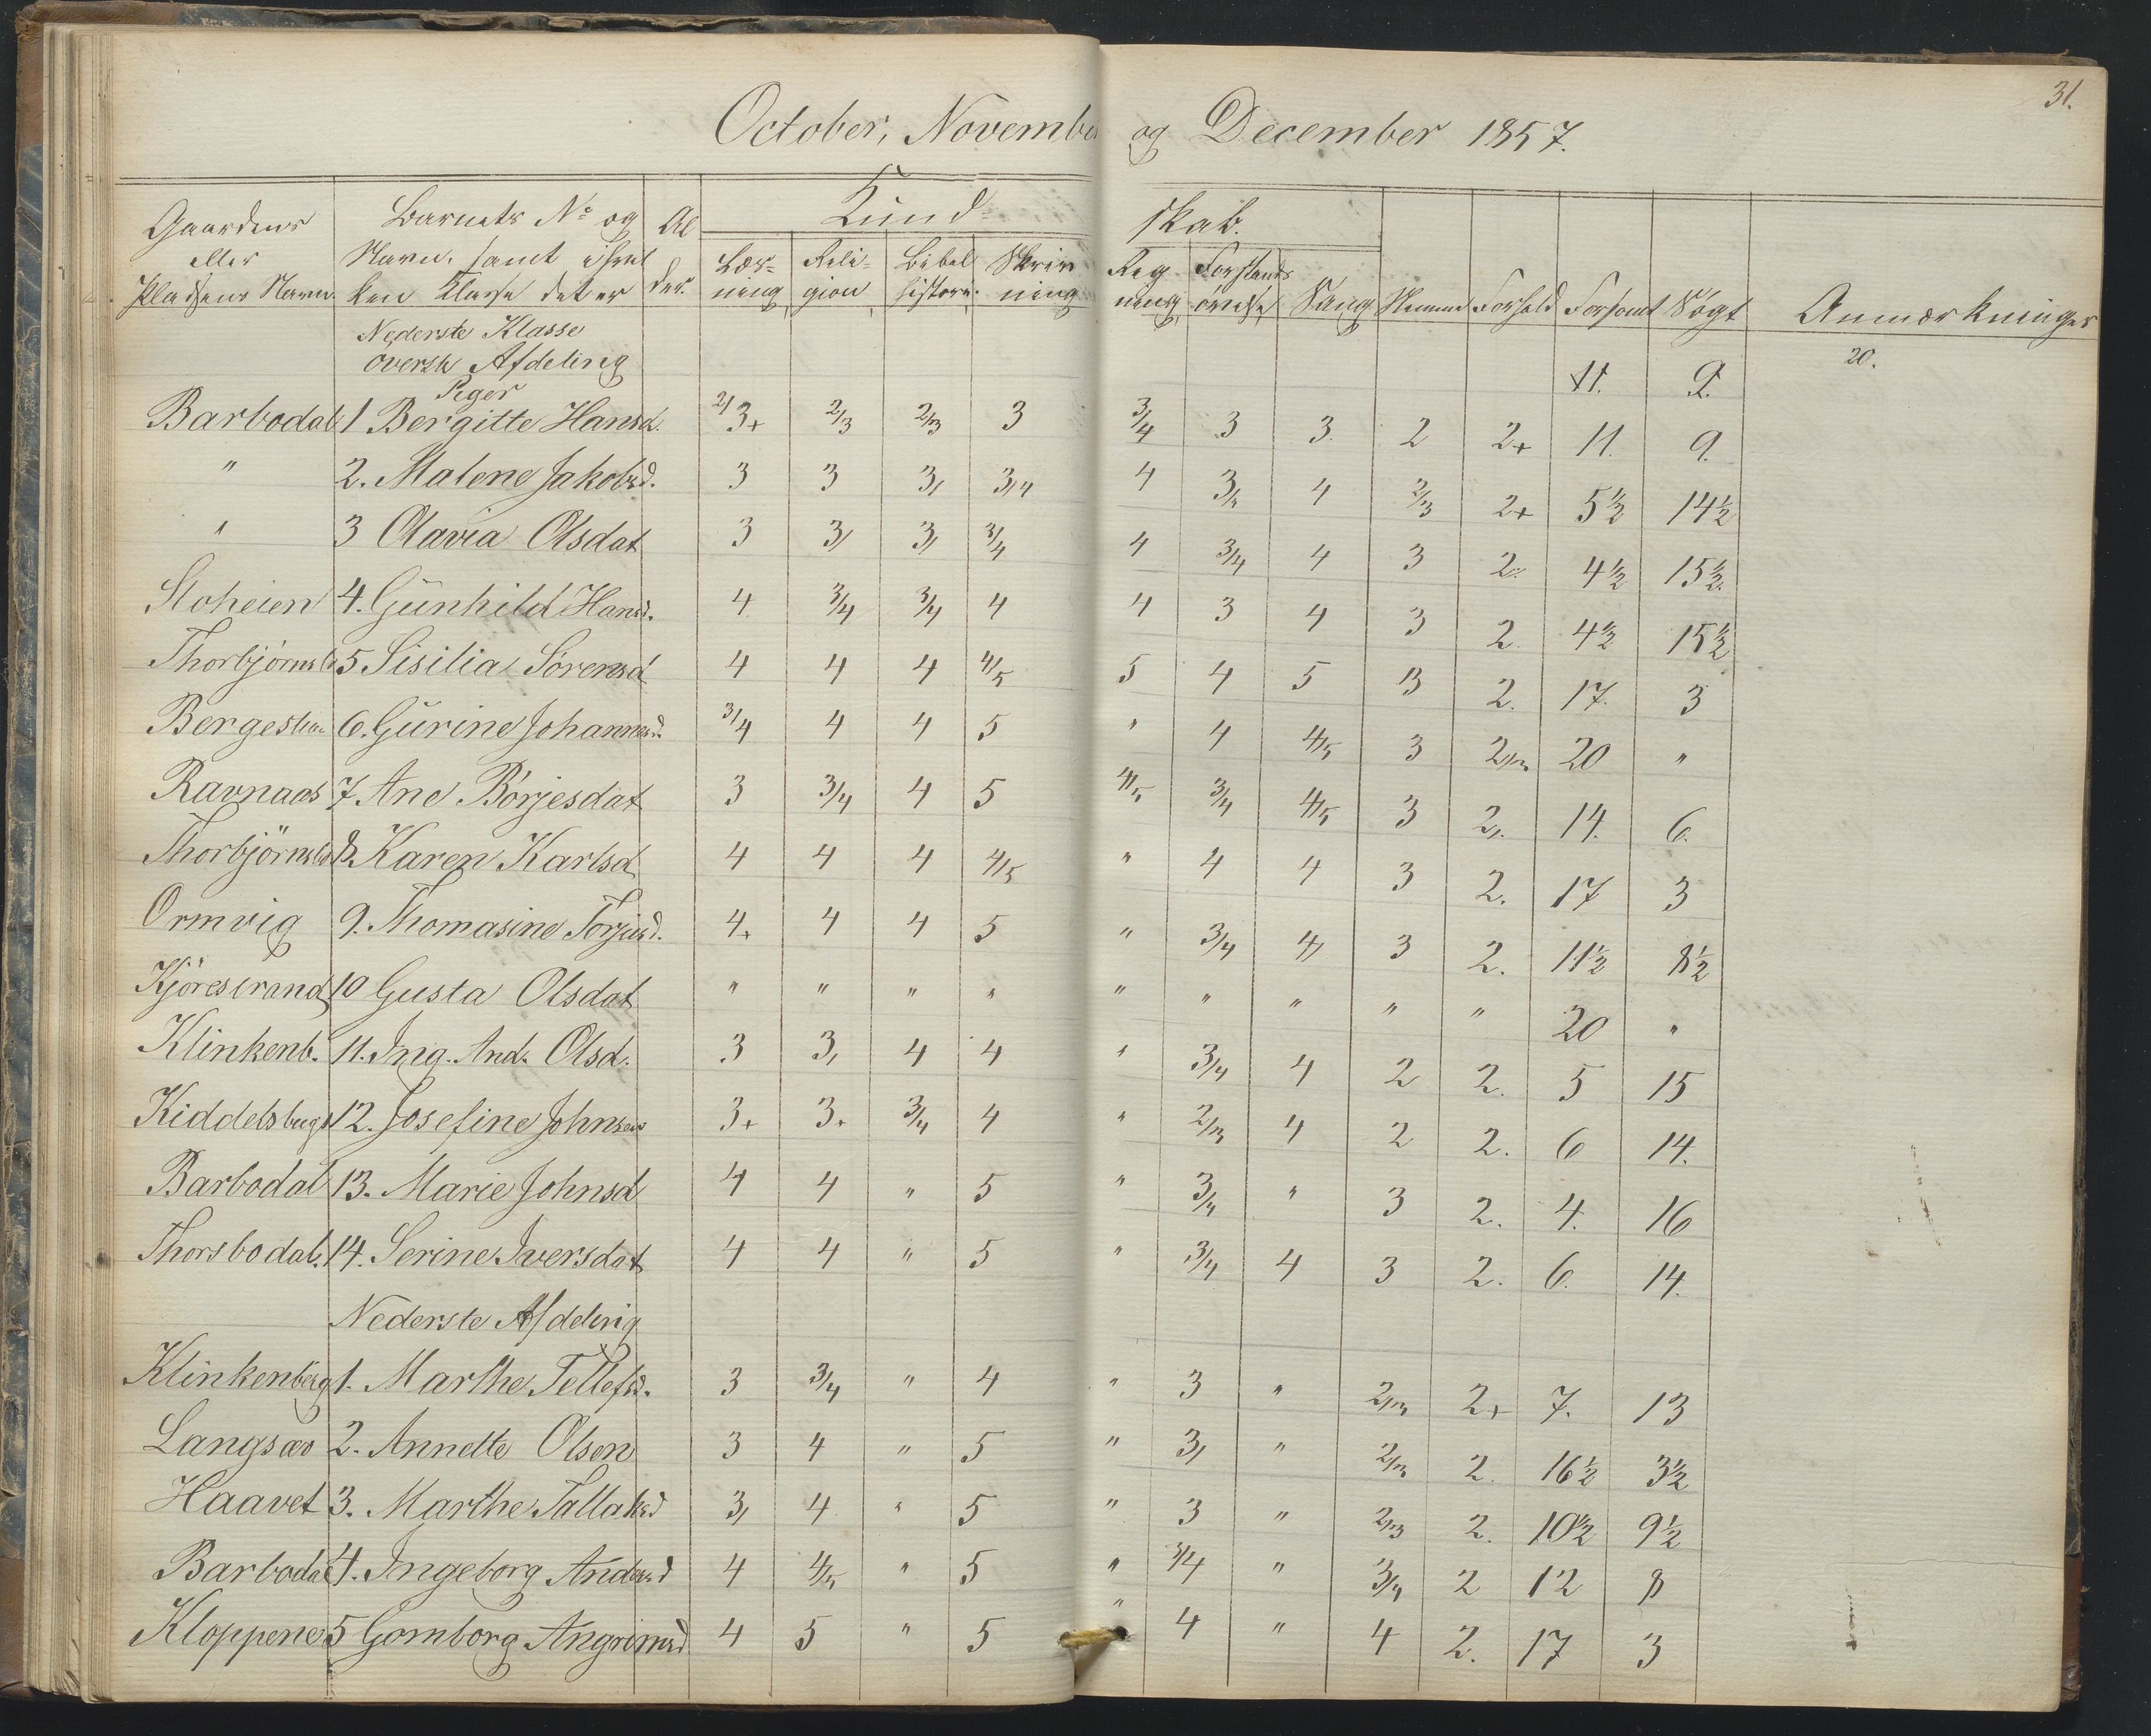 31.
October, November og December 1857.
Gaardens eller Pladsens Navn. Barnets No og Navn, samt i hvilken Klasse det er Alder. Kundskab. Forhold Forsømt Søgt Anmærkninger
Læsning Religion Bibelhistorie Skrivning Regning Forstandsøvelse Sang Nemme
Nederste Klasse
øverste Afdeling 20.
Piger 11. 9.
Barbodal 1 Bergitte Hansd. 2/3+ 2/3 2/3 3 3/4 3 3. 2 2+ 11. 9.
" 2. Malene Jakobsd. 3 3 3/ 3/4 4 3/4 4 2/3 2+ 5½ 14½
" 3 Olavia Olsdat 3 3/ 3/ 3/4 4 3/4 4 3 2. 4½ 15½.
Stoheien 4. Gunhild Hansd. 4 3/4 3/4 4 4 3 4 3 2. 4½ 15½
Thorbjørnsb 5 Sisilia Sørensd 4 4 4 4/5 5 4 5 3 2. 17. 3
6. Gurine Johannesd. 3/4 4 4 5 " 4 4/5 3 2/3 20 "
Ravnaas 7 Ane Börjesdat 3 3/4 4 5 4/5 3/4 4/5 3 2/. 14. 6.
Thorbjörnsb 8. Karen Karlsd 4 4 4 4/5 " 4 4 3 2. 17 3
Ormvig 9. Thomasine Torjusd. 4+ 4 4 5 " 3/4 4/ 3 2. 11½ 8½
Kjörestrand 10 Gusta Olsdat " " " " " " " " " 20 "
Klinkenb. 11. Ing. And. Olsd. 3 3/ 4 4 " 3/4 4 2 2. 5 15
Kiddelsbugt 12. Josefine Johnsen 3+ 3+ 3/4 4 " 2/3 4 2 2. 6 14.
Barbodal 13. Marie Johnsd 4 4 " 5 " 3/4 " 3 2. 4. 16
Thorsbodal. 14. Serine Iversdat 4 4 " 5 " 3/4 4 3 2. 6. 14.
Nederste Afdeling
Klinkenberg 1. Marthe Tellefsd. 3 3/4 " 4 " 3 " 2/3 2+ 7. 13
Langsæv 2. Annette Olsen 3 4 " 5 " 3/ " 2/3 2. 16½ 3½
Haavet 3. Marthe Tallaksd 3/ 4 " 5 " 3 " 2/3 2. 10½ 9½
Barbodal 4. Ingeborg Andersd 4 4/5 " 5 " 3/4 " 3/4 2 12 8
Kloppene 5 Gomborg Angrimsd 4 5 " 5 " 4 " 4 2. 17 3